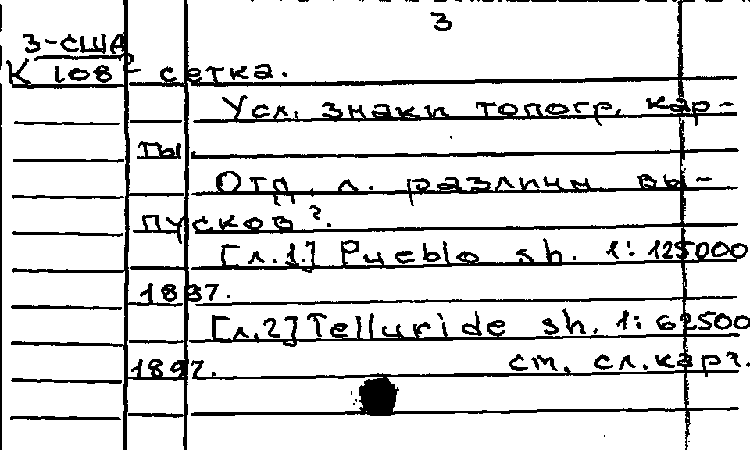 3
3-США
К 108² - сетка.
Усл. знаки топогр. кар-
ты.
Отд. л. различн вы-
пусков?.
[л.1.] Pueblo sh. 1:125000
1897.
[л.2] Telluride sh. 1:62500
1897. см. сл. карт.